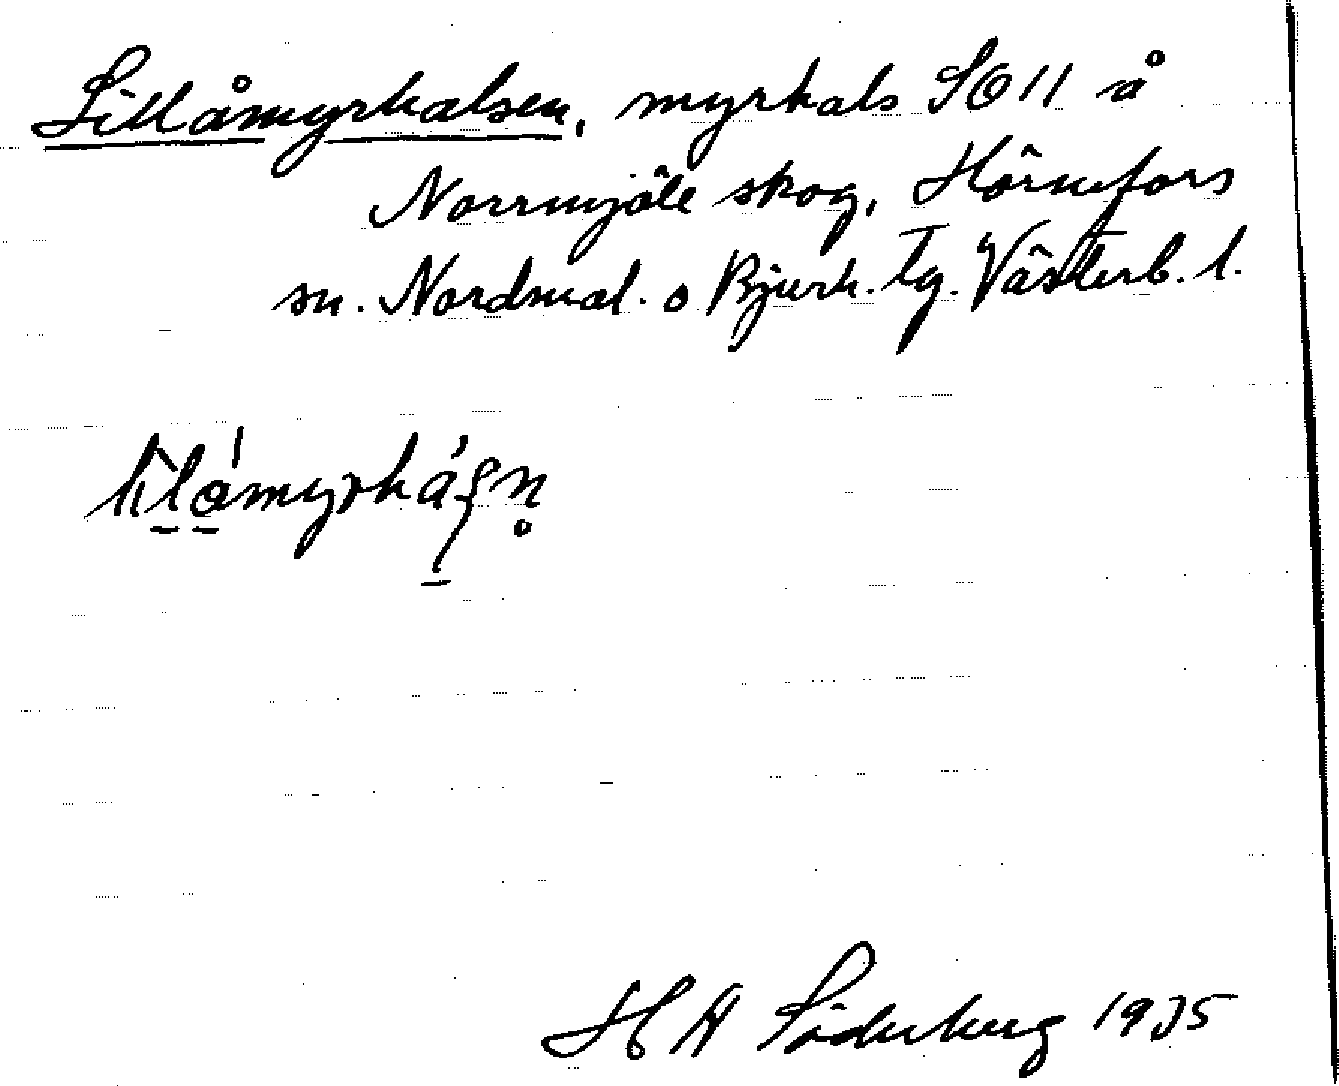 Lillåmyrhalsen, myrhals SO 11 å
Norrmjöle skog, Hörnefors
sn. Nordmal. o Bjurh. Tg. Västerb. l.
H A Söderberg 1935